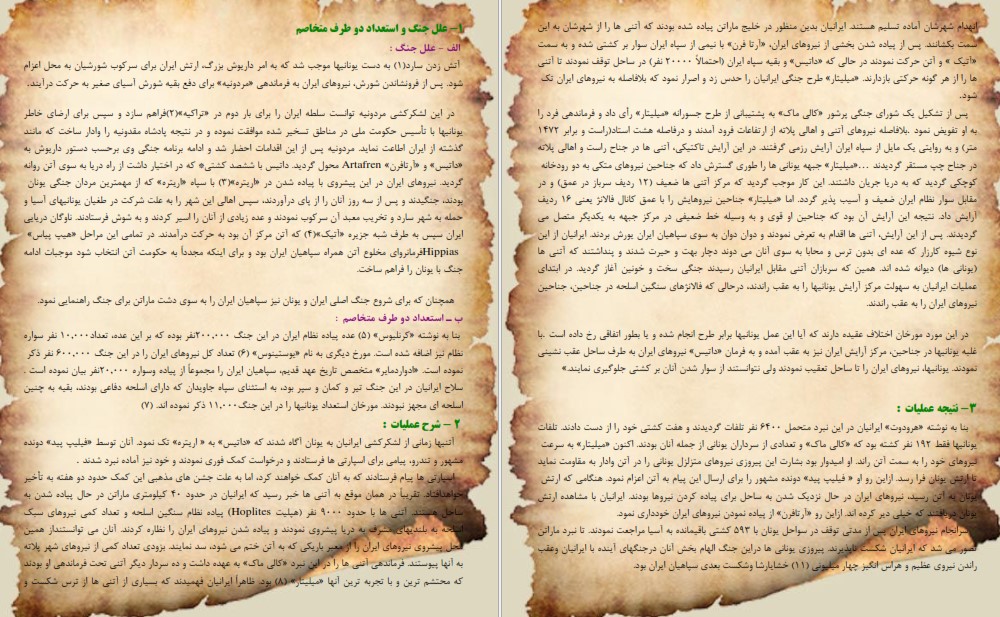 ۱- علل جنگ و استعداد دو طرف متخاصم
الف - علل جنگ :
آتش زدن سارد(۱) به دست یونانیها موجب شد که به امر داریوش بزرگ، ارتش ایران برای سرکوب شورشیان به محل اعزام
شود. پس از فرونشاندن شورش، نیروهای ایران به فرماندهی «مردونیه» برای دفع بقیه شورش آسیای صغیر به حرکت درآیند.
در این لشکرکشی مردونیه توانست سلطه ایران را برای بار دوم در «تراکیه»(۲)فراهم سازد و سپس برای ارضای خاطر
یونانیها با تأسیس حکومت ملی در مناطق تسخیر شده موافقت نموده و در نتیجه پادشاه مقدونیه را وادار ساخت که مانند
گذشته از ایران اطاعت نماید. مردونیه پس از این اقدامات احضار شد و ادامه برنامه جنگی وی برحسب دستور داریوش به
«داتیس» و «آرتافرن» Artafren محول گردید. داتیس با ششصد کشتی* که در اختیار داشت از راه دریا به سوی آتن روانه
گردید. نیروهای ایران در این پیشروی با پیاده شدن در «اریتره»(۳) با سپاه «اریتره» که از مهمترین مردان جنگی یونان
بودند، جنگیدند و پس از سه روز آنان را از پای درآوردند، سپس اهالی این شهر را به علت شرکت در طغیان یونانیهای آسیا و
حمله به شهر سارد و تخریب معبد آن سرکوب نمودند و عده زیادی از آنان را اسیر کردند و به شوش فرستادند. ناوگان دریایی
ایران سپس به طرف شبه جزیره «آتیک»(۴) که آتن مرکز آن بود به حرکت درآمدند. در تمامی این مراحل «هیپ پیاس»
Hippiasفرمانروای مخلوع آتن همراه سپاهیان ایران بود و برای اینکه مجدداً به حکومت آتن انتخاب شود موجبات ادامه
جنگ با یونان را فراهم ساخت.
همچنان که برای شروع جنگ اصلی ایران و یونان نیز سپاهیان ایران را به سوی دشت ماراتن برای جنگ راهنمایی نمود.
ب ـ استعداد دو طرف متخاصم :
بنا به نوشته «کرنلیوس» (۵) عده پیاده نظام ایران در این جنگ ۲۰۰,۰۰۰نفر بوده که بر این عده، تعداد۱۰,۰۰۰ نفر سواره
نظام نیز اضافه شده است. مورخ دیگری به نام «یوستینوس» (۶) تعداد کل نیروهای ایران را در این جنگ ۶۰۰,۰۰۰ نفر ذکر
نموده است. «ادواردمایر» متخصص تاریخ عهد قدیم، سپاهیان ایران را مجموعاً از پیاده وسواره ۲۰,۰۰۰نفر بیان نموده است .
سلاح ایرانیان در این جنگ تیر و کمان و سپر بود، به استثنای سپاه جاویدان که دارای اسلحه دفاعی بودند، بقیه به چنین
اسلحه ای مجهز نبودند. مورخان استعداد یونانیها را در این جنگ۱۱,۰۰۰ ذکر نموده اند. (۷)
۲ - شرح عملیات :
آتنیها زمانی از لشکرکشی ایرانیان به یونان آگاه شدند که «داتیس» به « اریتره» تک نمود. آنان توسط «فیلیپ پید» دونده
مشهور و تندرو، پیامی برای اسپارتی ها فرستادند و درخواست کمک فوری نمودند و خود نیز آماده نبرد شدند .
اسپارتی ها پیام فرستادند که به آنان کمک خواهند کرد، اما به علت جشن های مذهبی این کمک حدود دو هفته به تأخیر
خواهدافتاد. تقریباً در همان موقع به آتنی ها خبر رسید که ایرانیان در حدود ۴۰ کیلومتری ماراتن در حال پیاده شدن به
ساحل هستند. آتنی ها با حدود ۹۰۰۰ نفر (هپلیت Hoplites) پیاده نظام سنگین اسلحه و تعداد کمی نیروهای سبک
اسلحه به بلندیهای مشرف به دریا پیشروی نمودند و پیاده شدن نیروهای ایران را نظاره کردند. آنان می توانستنداز همین
محل پیشروی نیروهای ایران را از معبر باریکی که به آتن ختم می شود، سد نمایند. بزودی تعداد کمی از نیروهای شهر پلاته
به آنها پیوستند. فرماندهی آتنی ها را در این نبرد «کالی ماک» به عهده داشت و ده سردار دیگر آتنی تحت فرماندهی او بودند
که محتشم ترین و با تجربه ترین آنها «میلیتار» (۸) بود. ظاهراً ایرانیان فهمیدند که بسیاری از آتنی ها از ترس شکست و
انهدام شهرشان آماده تسلیم هستند. ایرانیان بدین منظور در خلیج ماراتن پیاده شده بودند که آتنی ها را از شهرشان به این
سمت بکشانند. پس از پیاده شدن بخشی از نیروهای ایران، «آرتا فرن» با نیمی از سپاه ایران سوار بر کشتی شده و به سمت
«آتیک » و آتن حرکت نمودند در حالی که «داتیس» و بقیه سپاه ایران (احتمالاً ۲۰۰۰۰ نفر) در ساحل توقف نمودند تا آتنی
ها را از هر گونه حرکتی بازدارند. «میلیتار» طرح جنگی ایرانیان را حدس زد و اصرار نمود که بلافاصله به نیروهای ایران تک
شود.
پس از تشکیل یک شورای جنگی پرشور «کالی ماک» به پشتیبانی از طرح جسورانه «میلیتار» رأی داد و فرماندهی فرد را
به او تفویض نمود .بلافاصله نیروهای آتنی و اهالی پلاته از ارتفاعات فرود آمدند و درفاصله هشت استاد(راست و برابر ۱۴۷۲
متر) و به روایتی یک مایل از سپاه ایران آرایش رزمی گرفتند. در این آرایش تاکتیکی، آتنی ها در جناح راست و اهالی پلاته
در جناح چپ مستقر گردیدند ...«میلیتار» جبهه یونانی ها را طوری گسترش داد که جناحین نیروهای متکی به دو رودخانه
کوچکی گردید که به دریا جریان داشتند. این کار موجب گردید که مرکز آتنی ها ضعیف (۱۲ ردیف سرباز در عمق) و در
مقابل سوار نظام ایران ضعیف و آسیب پذیر گردد. اما «میلیتار» جناحین نیروهایش را با عمق کانال فالانژ یعنی ۱۶ ردیف
آرایش داد. نتیجه این آرایش آن بود که جناحین او قوی و به وسیله خط ضعیفی در مرکز جبهه به یکدیگر متصل می
گردیدند. پس از این آرایش، آتنی ها اقدام به تعرض نمودند و دوان دوان به سوی سپاهیان ایران یورش بردند. ایرانیان از این
نوع شیوه کارزار که عده ای بدون ترس و محابا به سوی آنان می دوند دچار بهت و حیرت شدند و پنداشتند که آتنی ها
(یونانی ها) دیوانه شده اند. همین که سربازان آتنی مقابل ایرانیان رسیدند جنگی سخت و خونین آغاز گردید. در ابتدای
عملیات ایرانیان به سهولت مرکز آرایش یونانیها را به عقب راندند، درحالی که فالانژهای سنگین اسلحه در جناحین، جناحین
نیروهای ایران را به عقب راندند.
در این مورد مورخان اختلاف عقیده دارند که آیا این عمل یونانیها برابر طرح انجام شده و یا بطور اتفاقی رخ داده است .با
غلبه یونانیها در جناحین، مرکز آرایش ایران نیز به عقب آمده و به فرمان «داتیس» نیروهای ایران به طرف ساحل عقب نشینی
نمودند. یونانیها، نیروهای ایران را تا ساحل تعقیب نمودند ولی نتوانستند از سوار شدن آنان بر کشتی جلوگیری نمایند.»
۳- نتیجه عملیات :
بنا به نوشته «هرودوت» ایرانیان در این نبرد متحمل ۶۴۰۰ نفر تلفات گردیدند و هفت کشتی خود را از دست دادند. تلفات
یونانیها فقط ۱۹۲ نفر کشته بود که «کالی ماک» و تعدادی از سرداران یونانی از جمله آنان بودند. اکنون «میلیتار» به سرعت
نیروهای خود را به سمت آتن راند. او امیدوار بود بشارت این پیروزی نیروهای متزلزل یونانی را در آتن وادار به مقاومت نماید
تا ارتش یونان فرا رسد. ازاین رو او « فیلیپ پید» دونده مشهور را برای ارسال این پیام به آتن اعزام نمود. هنگامی که ارتش
یونان به آتن رسید، نیروهای ایران در حال نزدیک شدن به ساحل برای پیاده کردن نیروها بودند. ایرانیان با مشاهده ارتش
یونان دریافتند که خیلی دیر کرده اند. ازاین رو «آرتافرن» از پیاده نمودن نیروهای ایران خودداری نمود.
سرانجام نیروهای ایران پس از مدتی توقف در سواحل یونان با ۵۹۳ کشتی باقیمانده به آسیا مراجعت نمودند. تا نبرد ماراتن
تصور می شد که ایرانیان شکست ناپذیرند. پیروزی یونانی ها دراین جنگ الهام بخش آنان درجنگهای آینده با ایرانیان وعقب
راندن نیروی عظیم و هراس انگیز چهار میلیونی (۱۱) خشایارشا وشکست بعدی سپاهیان ایران بود.